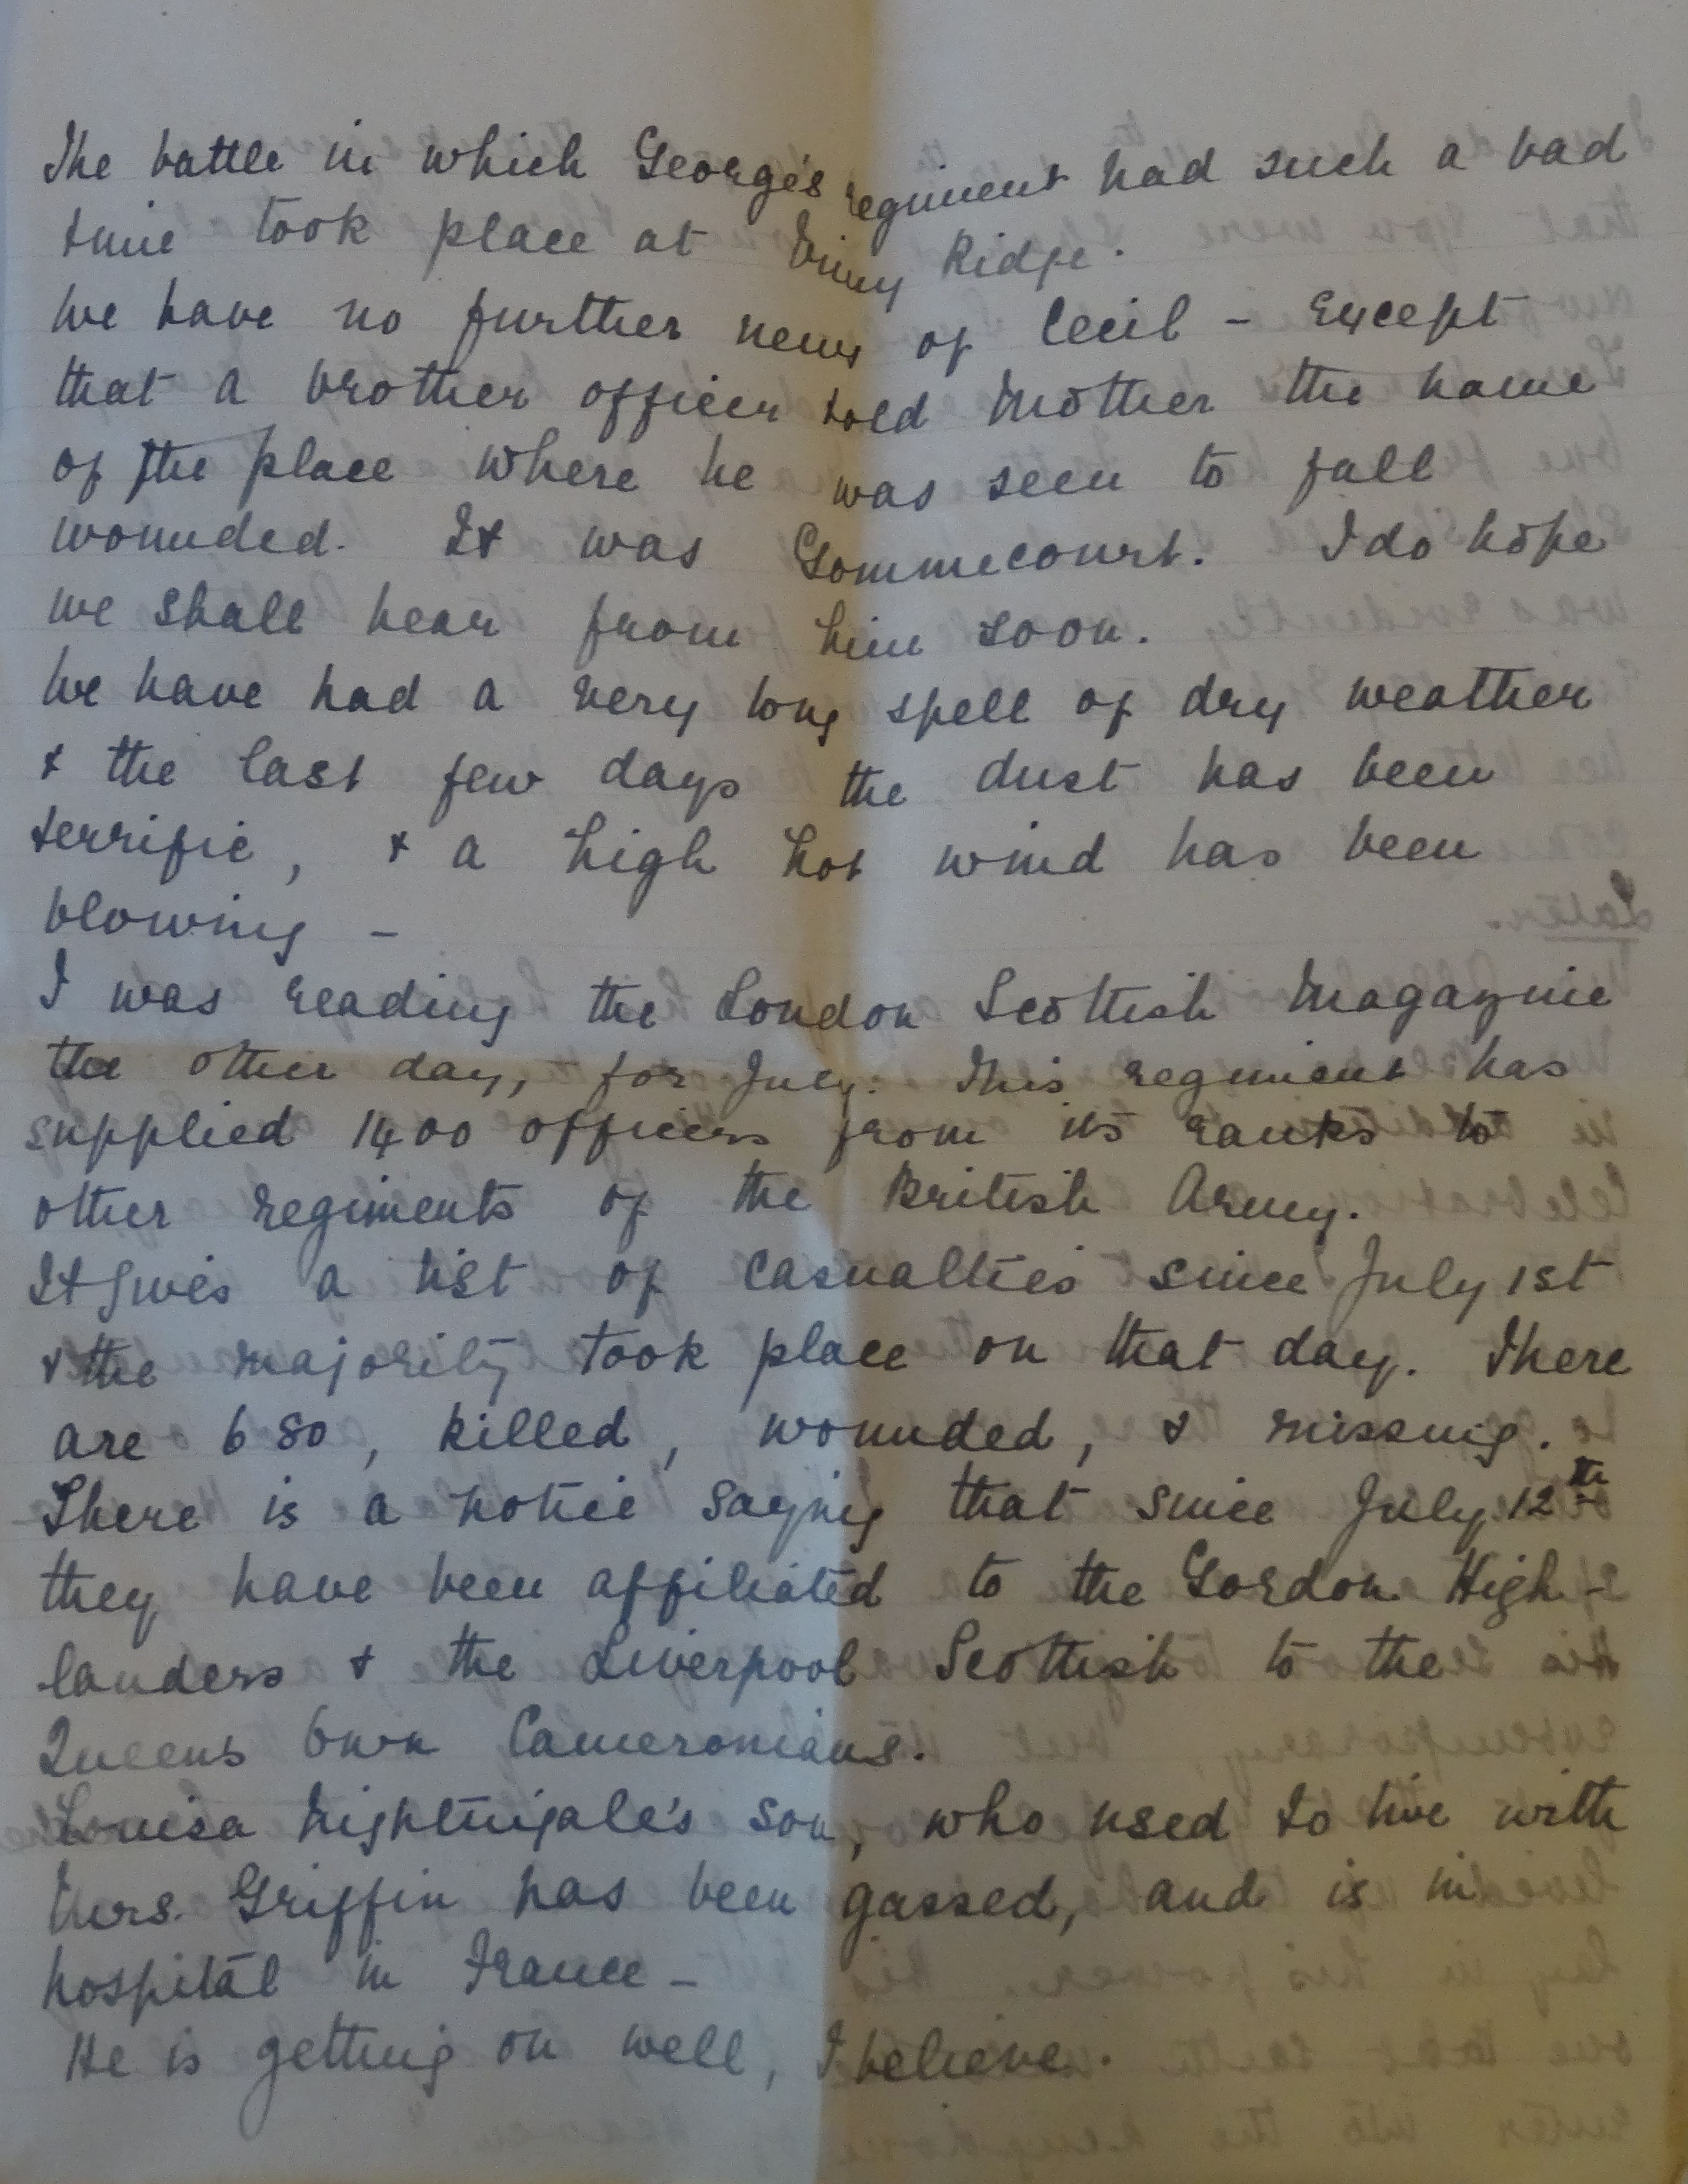 The battle in which George's regiment had such a bad
time took place at Vimy Ridge.
We have no further news of Cecil – except
that a brother officer told Mother the name
of the place where he was seen to fall
wounded. It was Gommecourt. I do hope
we shall hear from him soon.
We have had a very long spell of dry weather
& the last few days the dust has been
terrific, & a high hot wind has been
blowing –
I was reading the London Scottish Magazine
the other day, for July. This regiment has
supplied 1400 officers from its ranks to
other regiments of the British Army.
It gives a list of casualties since July 1st
& the majority took place on that day. There
are 680, killed, wounded, & missing.
There is a notice saying that since July 12th
they have been affiliated to the Gordon High-
landers & the Liverpool Scottish to the
Queens Own Cameronians.
Louisa Nightingale's son, who used to live with
Mrs. Griffin has been gassed, and is in
hospital in France –
He is getting on well, I believe.